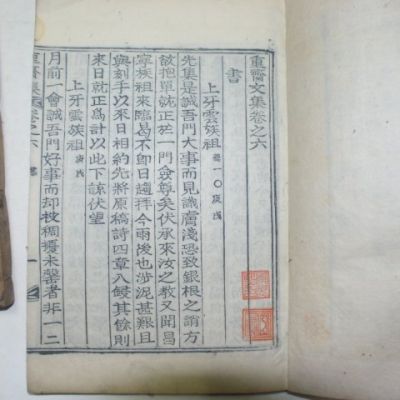 重齋文集卷之六
書
上牙雲族祖 濬一〇庚戌
先集是誠吾門大事而見識膚淺恐致銀根之誚方
欲抱單就正於一門僉尊矣伏承來汝之教又聞昌
寧族祖來臨曷不卽日趨拜今雨後也涉泥甚艱且
與刻手以來日相約先將原稿詩四章入鋟其餘則
來日就正爲計以此下諒伏望
上牙雲族祖 庚戌
月前一會誠吾門好事而却被稠擾未罄者非一二
重齋集 卷之六 書 一